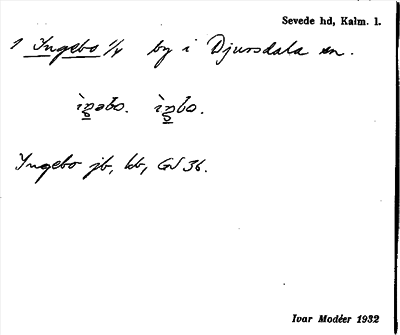 Sevede hd, Kalm. l.
1 Ingebo 1/4 by i Djursdala sn.
ìŋəbo. ìŋbo.
Yngebo jb, kb, GS 36.
Ivar Modéer 1932